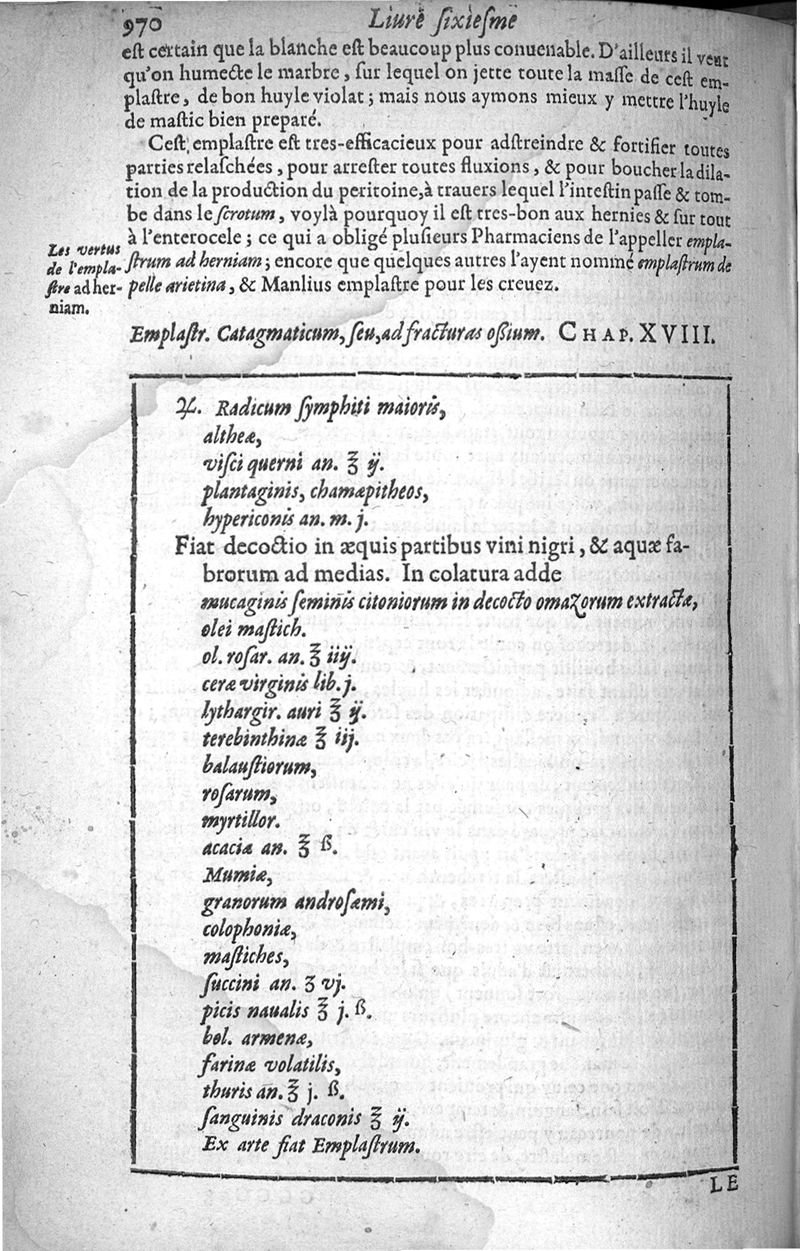 970 Liure sixiesme
est certain que la blanche est beaucoup plus conuenable. D'ailleurs il veut
qu'on humecte le marbre, sur lequel on jette toute la masse de cest em-
plastre, de bon huyle violat; mais nous aymons mieux y mettre l'huyle
de mastic bien preparé.
Cest, emplastre est tres-efficacieux pour adstreindre & fortifier toutes
parties relaschées, pour arrester toutes fluxions, & pour boucher la dila-
tion de la production du peritoine, à trauers lequel l'intestin passe & tom-
be dans le scrotum, voylà pourquoy il est tres-bon aux hernies & sur tout
à l'enterocele; ce qui a obligé plusieurs Pharmaciens de l'appeller empla-
strum ad herniam; encore que quelques autres l'ayent nommé emplastrum de
pelle arietina, & Manlius emplastre pour les creuez.
Les vertus
de l'empla-
stre ad her-
niam.
Emplastr. Catagmaticum, seu, ad fracturas ossium. CHAP. XVIII.
♃. Radicum symphiti maioris,
altheæ,
visci querni an. ℥ ij.
plantaginis, chamæpitheos,
hypericonis an. m. j.
Fiat decoctio in æquis partibus vini nigri, & aquæ fa-
brorum ad medias. In colatura adde
mucaginis seminis citoniorum in decocto omazorum extractæ,
olei mastich.
ol. rosar. an. ℥ iiij.
ceræ virginis lib. j.
lythargir. auri ℥ ij.
terebinthinæ ℥ iij.
balaustiorum,
rosarum,
myrtillor.
acaciæ an. ℥ ß.
Mumiæ,
granorum androsæmi,
colophoniæ,
mastiches,
succini an. ʒ vj.
picis naualis ℥ j. ß.
bol. armenæ,
farinæ volatilis,
thuris an. ℥ j. ß.
sanguinis draconis ℥ ij.
Ex arte fiat Emplastrum.
LE